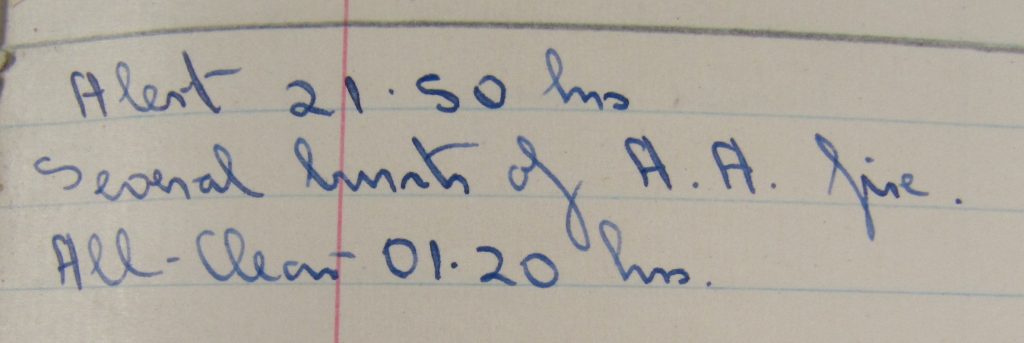 Alert 21.50 hrs
Several bursts of A.A. fire.
All-Clear 01.20 hrs.